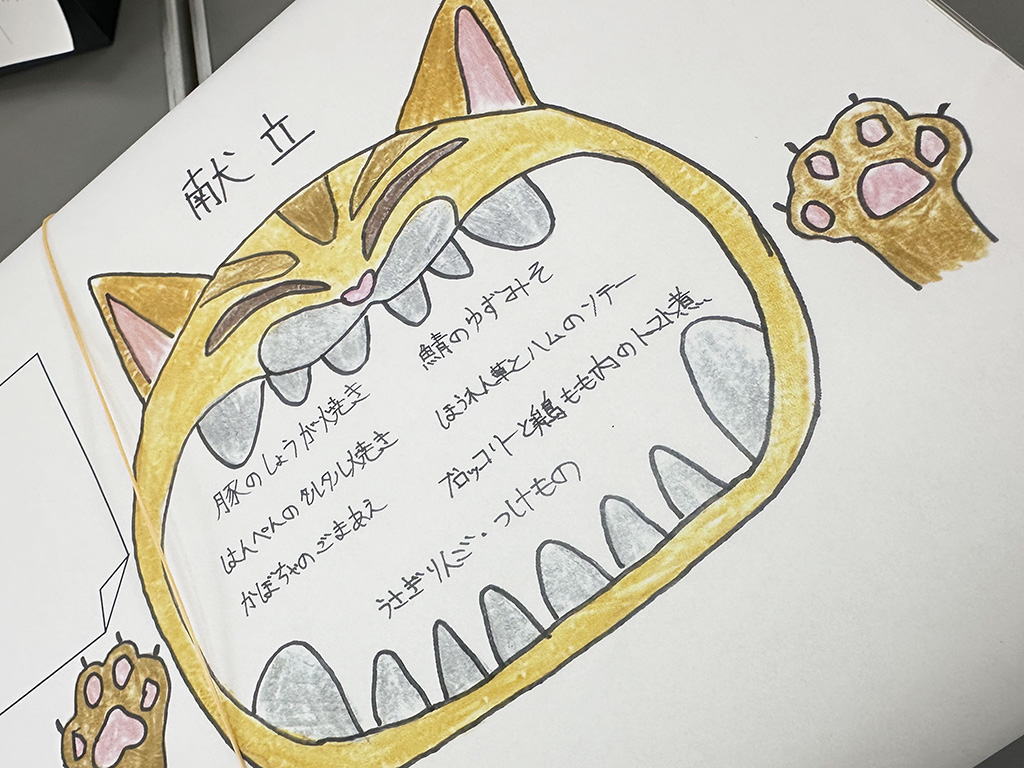 献立
豚のしょうが焼き
はんぺんのタルタル焼き
かぼちゃのごまあえ
鯖のゆずみそ
ほうれん草とハムのソテー
ブロッコリーと鶏もも肉のトマト煮
うさぎりんご・つけもの